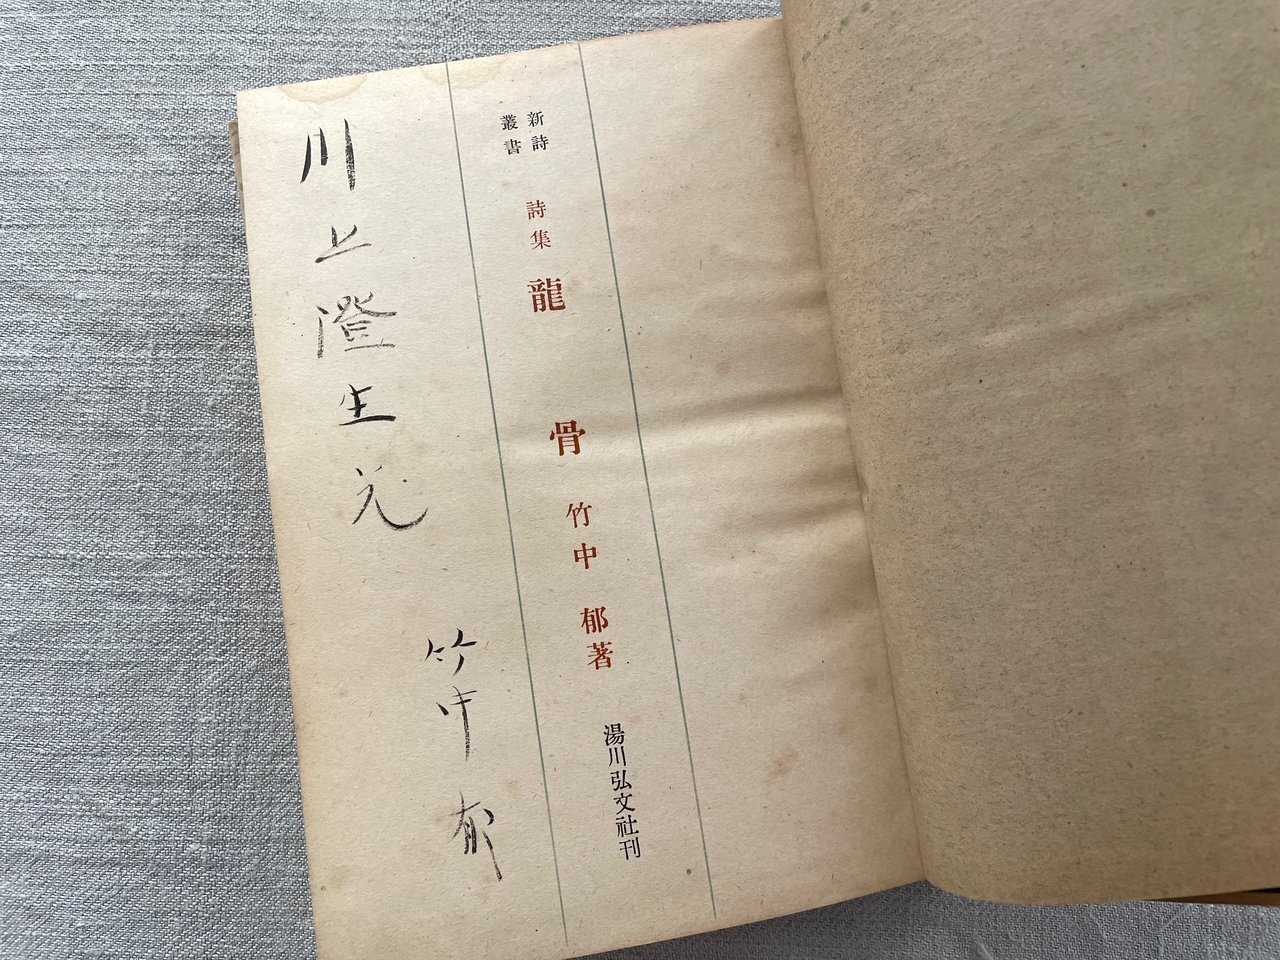 新詩
叢書
詩集 龍骨 竹中郁著 湯川弘文社刊
川上澄生兄
竹中郁